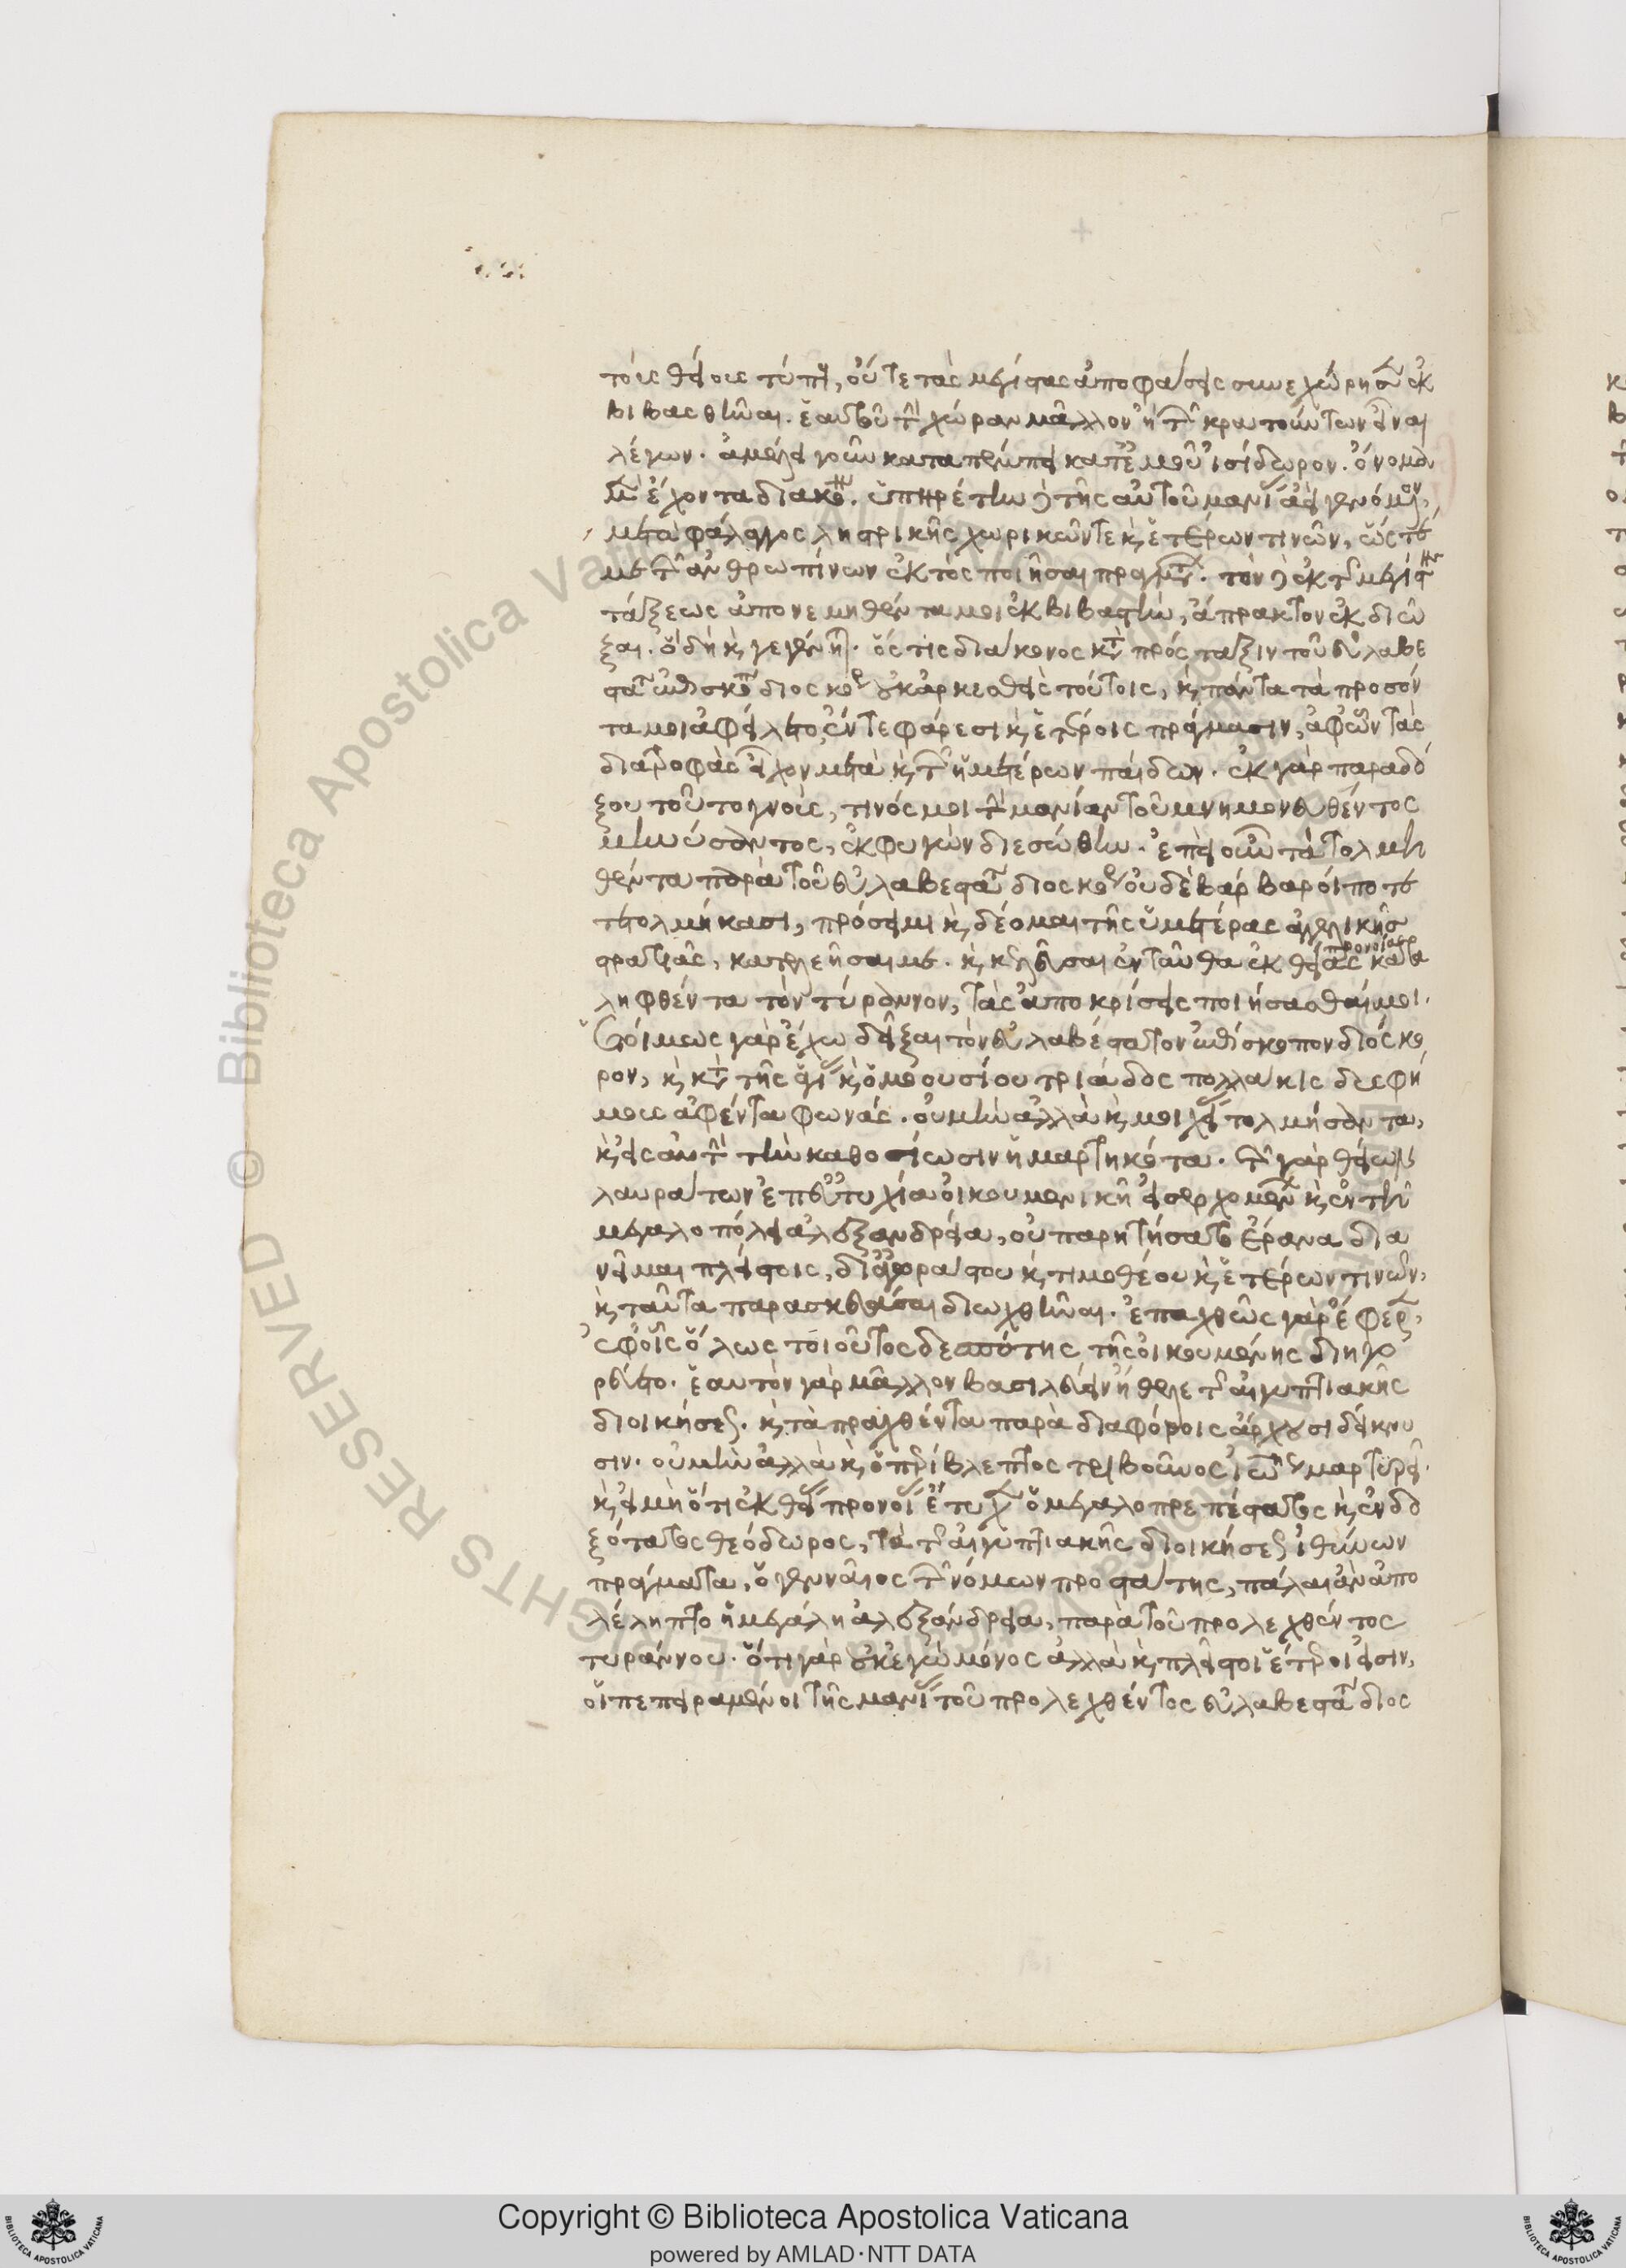 τοῖς θείοις τύποις, οὔτε τὰς μεγίστας ἀποφάσεις συνεχώρησεν ἐκ
βιβασθῆναι. ἑαυτοῦ τὴν χώραν μᾶλλον ἢ τῶν κρατούντων εἶναι
λέγων. ἀμέλει γοῦν καταπέμπει κατ' ἐμοῦ ἰσίδωρον. ὄνομα
μὲν ἔχοντα διακόνου. ὑπηρέτην δὲ τῆς αὐτοῦ μανίας ἀεὶ γενόμενον,
μετὰ φάλαγγος ληστρικῆς χωρικῶν τε καὶ ἑτέρων τινῶν, ὥστε
με τῶν ἀνθρωπίνων ἐκτὸς ποιῆσαι πραγμάτων. τὸν δὲ ἐκ τῆς μεγίστης
τάξεως ἀπονεμηθέντα μοι ἐκβιβαστὴν, ἄπρακτον ἐκδιῶ
ξαι. ὃ δὴ καὶ γεγένηται. ὅστις διάκονος κατὰ πρόσταξιν τοῦ εὐλαβε
στάτου ἐπισκόπου διοσκόρου οὐκ ἀρκεσθεὶς τούτοις, καὶ πάντα τὰ προσόν
τα μοι ἀφείλετο, ἔν τε φάρεσι καὶ ἑτέροις πράγμασιν, ἀφ' ὧν τὰς
διατροφὰς εἶχον μετὰ καὶ τῶν ἡμετέρων παίδων. ἐκ γὰρ παραδό
ξου τοῦτο γνοὺς, τινός μοι τὴν μανίαν τοῦ μνημονευθέντος
μηνύσαντος, ἐκφυγὼν διεσώθην. ἐπεὶ οὖν τὰ τολμη
θέντα παρὰ τοῦ εὐλαβεστάτου διοσκόρου οὐδὲ βάρβαροί ποτε
τετολμήκασι, πρόσειμι καὶ δέομαι τῆς ὑμετέρας ἀγγελικῆς
στρατιᾶς, κατελεῆσαι με. καὶ κελεῦσαι ἐνταῦθα ἐκ θείας προνοίας κατα
ληφθέντα τὸν τύραννον, τὰς ἀποκρίσεις ποιήσασθαί μοι.
ἑτοίμως γὰρ ἔχω δεῖξαι τὸν εὐλαβέστατον ἐπίσκοπον διόσκο
ρον, καὶ κατὰ τῆς ἁγίας καὶ ὁμοουσίου τριάδος πολλάκις δυσφή
μους ἀφέντα φωνάς. οὐ μὴν ἀλλὰ καὶ μοιχείας τολμήσαντα,
καὶ εἰς αὐτὴν τὴν καθοσίωσιν ἡμαρτηκότα. τῶν γὰρ θείων
λαυράτων ἐπ' εὐτυχίᾳ οἰκουμενικῇ εἰσερχομένων καὶ ἐν τῇ
μεγαλοπόλει ἀλεξανδρείᾳ, οὐ παρῃτήσατο ἔρανα δια
νεῖμαι πλείστοις, δι' ἀγοράστου καὶ τιμοθέου καὶ ἑτέρων τινῶν,
καὶ ταῦτα παρασκευάσαι διωχθῆναι. ἐπαχθῶς γὰρ ἔφερεν,
ἐφ' οἷς ὅλως τοιοῦτος δεσπότης τῆς οἰκουμένης ἀνηγο
ρεύετο. ἑαυτὸν γὰρ μᾶλλον βασιλεύειν ἤθελε τῆς αἰγυπτιακῆς
διοικήσεως. καὶ τὰ πραχθέντα παρὰ διαφόροις ἄρχουσι δείκνυ
σιν. οὐ μὴν ἀλλὰ καὶ ὁ περίβλεπτος τριβοῦνος ἰωάννης μαρτυρεῖ.
καὶ εἰ μὴ ὅτι ἐκ θείας προνοίας ἔτυχεν ὁ μεγαλοπρεπέστατος καὶ ἐνδο
ξότατος θεόδωρος, τὰ τῆς αἰγυπτιακῆς διοικήσεως ἰθύνων
πράγματα, ὁ γενναῖος τῶν νόμων προστάτης, πάλαι ἂν ἀπο
λέληπτο ἡ μεγάλη ἀλεξάνδρεια, παρὰ τοῦ προλεχθέντος
τυράννου. ὅτι γὰρ οὐκ ἐγὼ μόνος ἀλλὰ καὶ πλεῖστοι ἕτεροι εἰσιν,
οἱ πεπειραμένοι τῆς μανίας τοῦ προλεχθέντος εὐλαβεστάτου διοσ